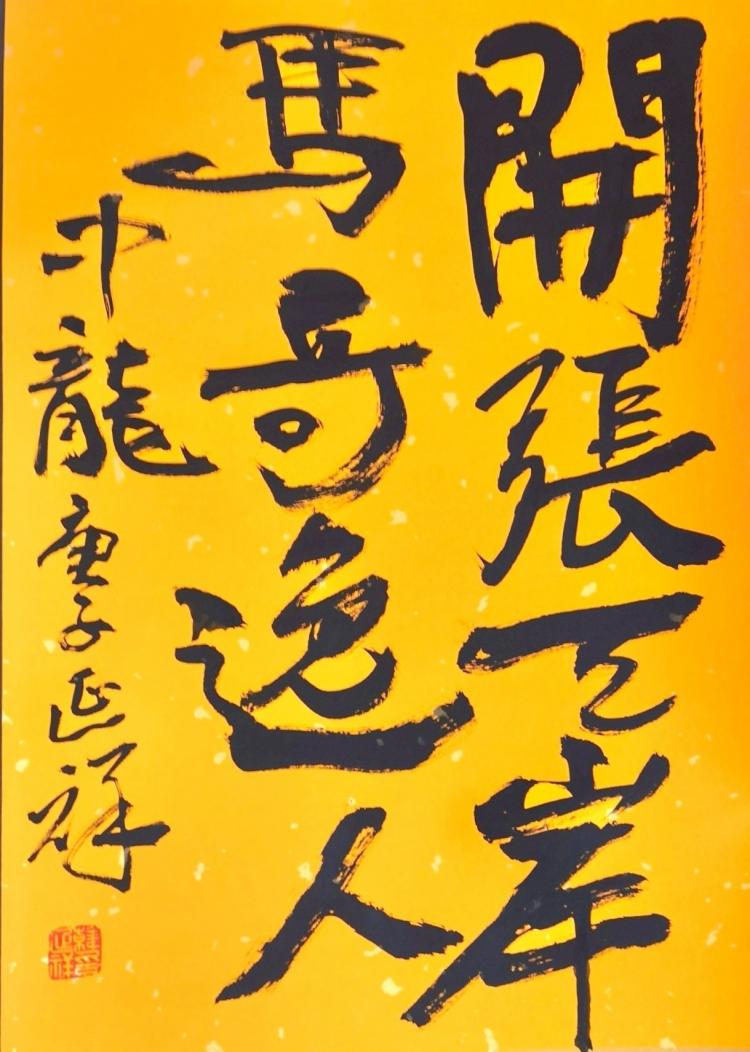 開張天岸
馬奇逸人
中龍庚子延祥